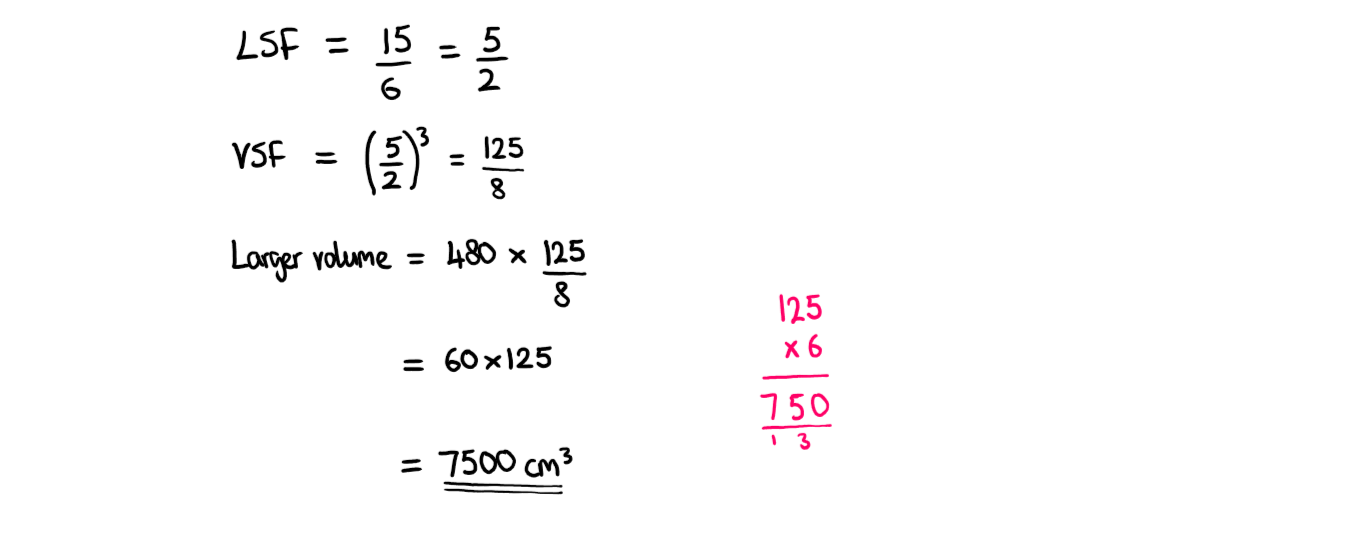 LSF = 15/6 = 5/2
VSF = (5/2)³ = 125/8
Larger volume = 480 × 125/8
= 60 × 125
= 7500 cm³
125
× 6
750
1 3